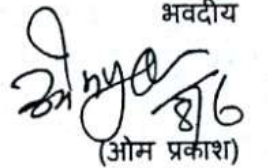 भवदीय
8/6
(ओम प्रकाश)